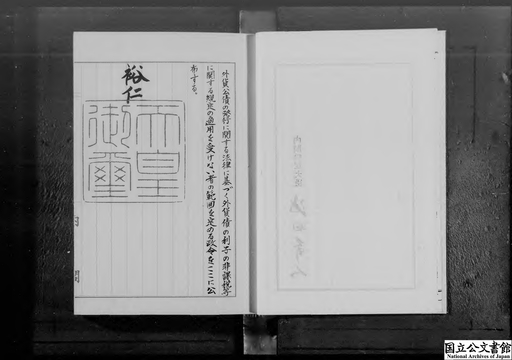 外貨公債の発行に関する法律に基づく外貨債の利子の非課税等
に関する規定の適用を受けない者の範囲を定める政令をここに公
布する。
裕仁
天皇
御璽
内閣総理大臣
国立公文書館
National Archives of Japan